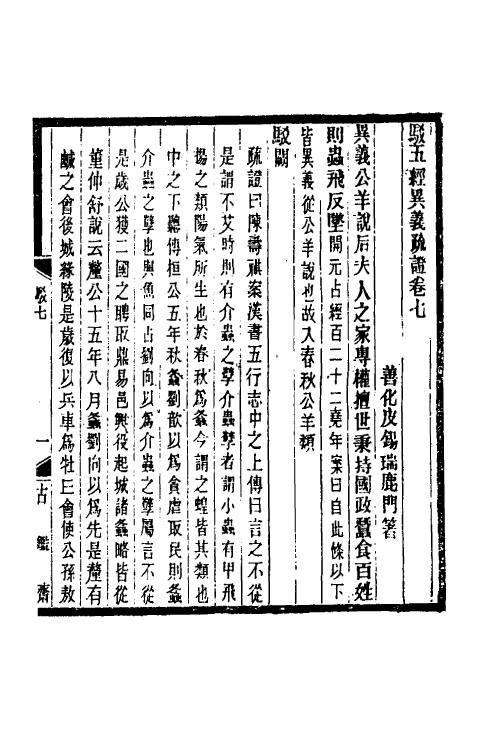 駁五經異義疏證卷七
善化皮錫瑞鹿門箸
異義公羊說后夫人之家專權擅世秉持國政蠶食百姓
則蟲飛反墜開元占經百二十二堯年案曰自此條以下
皆異義從公羊說也故入春秋公羊類
駁闕
疏證曰陳壽祺案漢書五行志中之上傳曰言之不從
是謂不艾時則有介蟲之孽介蟲孽者謂小蟲有甲飛
揚之類陽氣所生也於春秋為螽今謂之蝗皆其類也
中之下聽傳桓公五年秋螽劉歆以為貪虐取民則螽
介蟲之孽也與魚同占劉向以為介蟲之孽屬言不從
是歲公獲二國之聘取鼎易邑興役起城諸螽略皆從
董仲舒說云釐公十五年八月螽劉向以為先是釐有
鹹之會後城緣陵是歲復以兵車為牡丘會使公孫敖
駁七
一
古鑑齋